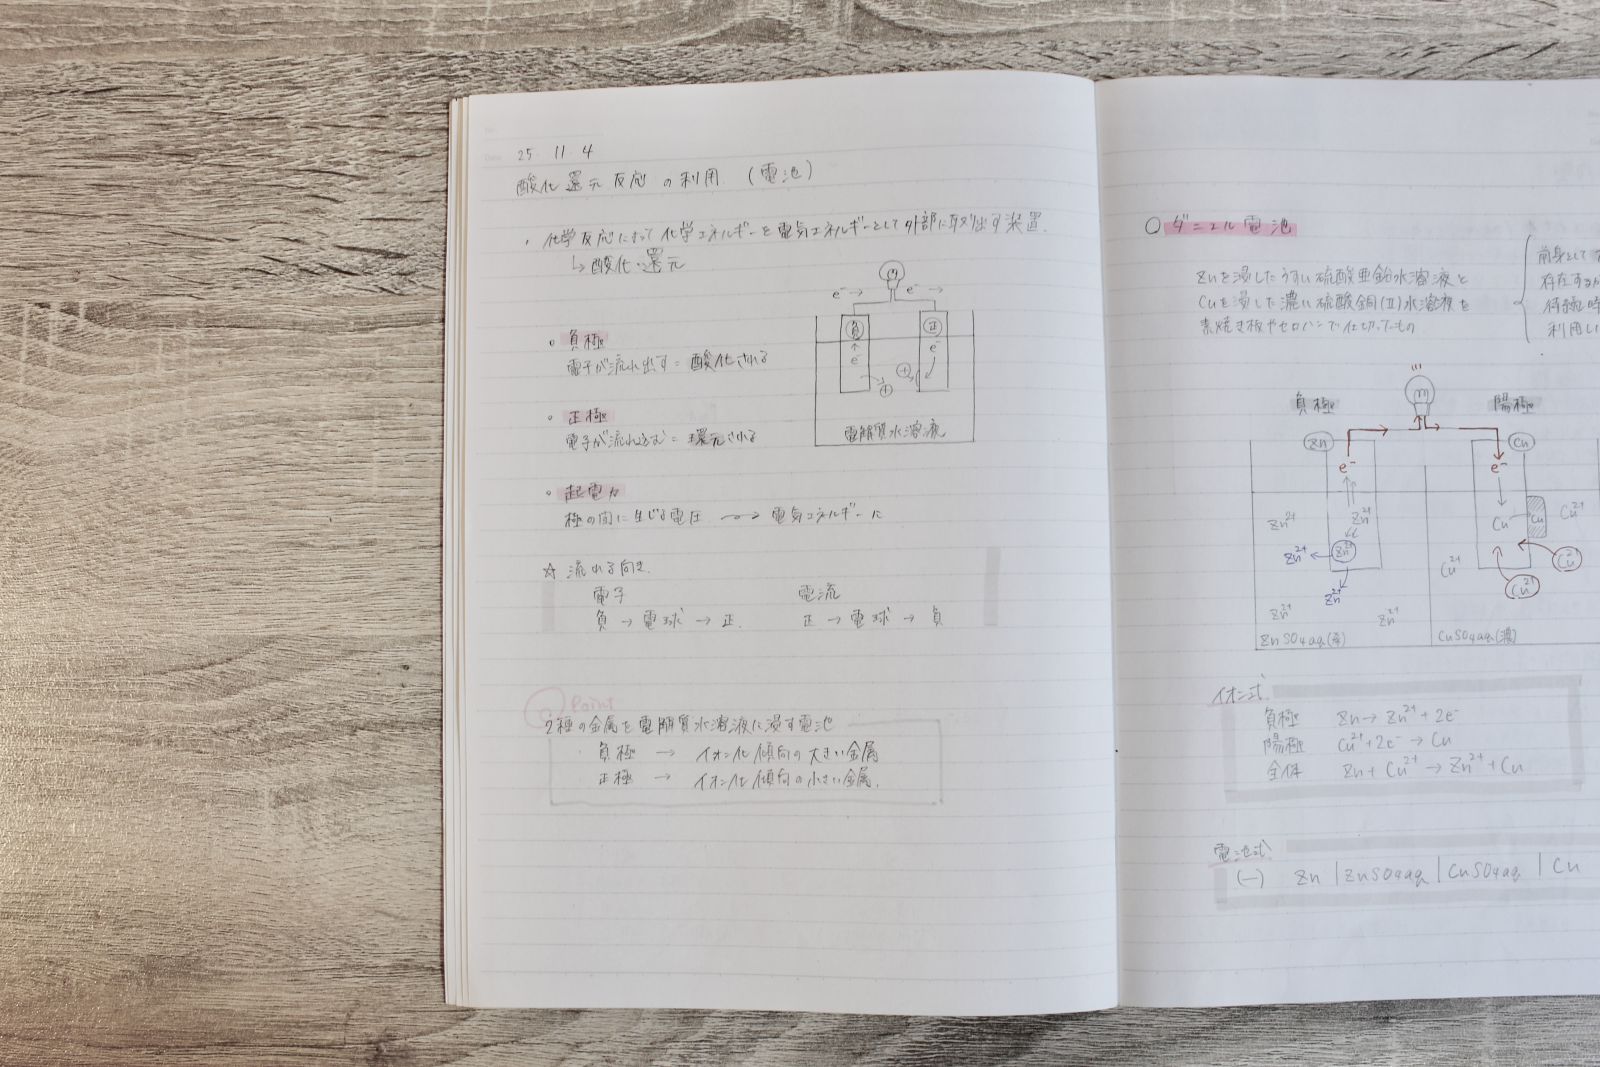 25 11 4
酸化還元反応の利用 (電池)
・化学反応によって化学エネルギーを電気エネルギーとして外部に取り出す装置.
↳酸化・還元
e⁻→ e⁻→
負 正
e⁻ e⁻
+ +
電解質水溶液
・負極
電子が流れ出す = 酸化される
・正極
電子が流れ込む = 還元される
・起電力
極の間に生じる電圧 → 電気エネルギーに
☆ 流れる向き.
電子 電流
負 → 電球 → 正. 正 → 電球 → 負
Point
2種の金属を電解質水溶液に浸す電池
負極 → イオン化傾向の大きい金属
正極 → イオン化傾向の小さい金属.
○ ダニエル電池
Znを浸したうすい硫酸亜鉛水溶液と
Cuを浸した濃い硫酸銅(Ⅱ)水溶液を
素焼き板やセロハンで仕切ったもの
前身として
存在する
持続時
利用し
負極 陽極
Zn Cu
e⁻ e⁻
Zn²⁺ Zn²⁺ Cu Cu Cu²⁺
Zn²⁺ Zn²⁺ Cu²⁺ Cu²⁺
Zn²⁺ Cu²⁺
Zn²⁺ Zn²⁺
ZnSO₄aq CuSO₄aq(濃)
イオン式
負極 Zn → Zn²⁺ + 2e⁻
陽極 Cu²⁺ + 2e⁻ → Cu
全体 Zn + Cu²⁺ → Zn²⁺ + Cu
電池式
(−) Zn | ZnSO₄aq | CuSO₄aq | Cu